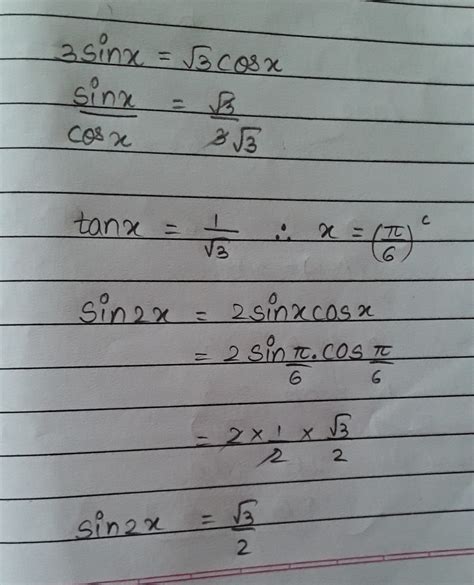 3sinx = √3 cosx
sinx/cosx = √3/3√3
tanx = 1/√3 ∴ x = (π/6)ᶜ
sin2x = 2sinxcosx
= 2sinπ/6.cosπ/6
= 2 × 1/2 × √3/2
sin2x = √3/2